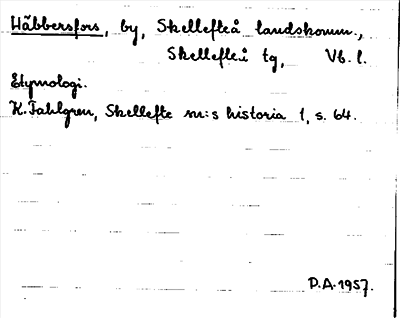 Häbbersfors, by, Skellefteå landskomm.,
Skellefteå tg, Vb. l.
Etymologi.
K. Fahlgren, Skellefte sn:s historia 1, s. 64.
P.A. 1957.